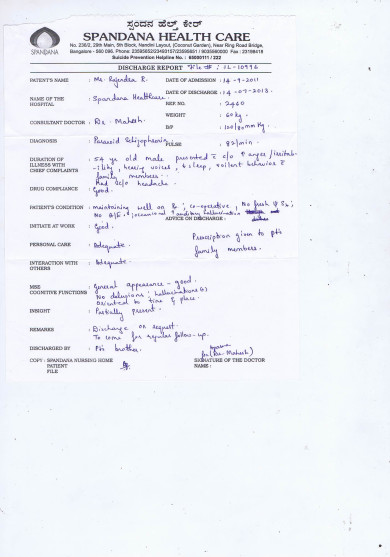 ಸ್ಪಂದನ ಹೆಲ್ತ್ ಕೇರ್
SPANDANA HEALTH CARE
SPANDANA
No. 236/2, 29th Main, 5th Block, Nandini Layout, (Coconut Garden), Near Ring Road Bridge,
Suicide Prevention Helpline No. : 65000111 / 222
DISCHARGE REPORT File # : IL-10996
PATIENT'S NAME : Mr. Rajendra R. DATE OF ADMISSION : 14-9-2011
DATE OF DISCHARGE : 14-07-2013.
NAME OF THE HOSPITAL : Spandana Healthcare. REF NO. : 2460
WEIGHT : 60kg
CONSULTANT DOCTOR : Dr. Mahesh. B/P : 120/80mmHg.
DIAGNOSIS : Paranoid Schizophrenia PULSE : 82/min.
DURATION OF ILLNESS WITH CHIEF COMPLAINTS : 54 yr old male presented c̄ c/o ↑ anger/irritab-
-ility, hearing voices, ↓ sleep, voilent behavior c̄
family members.
Had c/o headache.
DRUG COMPLIANCE : Good.
PATIENT'S CONDITION : maintaining well on , co-operative, No fresh ψ Sx,
No occasional auditory hallucination
ADVICE ON DISCHARGE :
INITIATE AT WORK : Good. Prescription given to pt's
PERSONAL CARE : Adequate. family members.
INTERACTION WITH OTHERS : Adequate.
MSE COGNITIVE FUNCTIONS : General appearance - good.
No delusions, hallucinations
Oriented to time & place.
INSIGHT : Partially present.
REMARKS : Discharge on request.
To come for regular follow-up.
DISCHARGED BY : Pt's brother.
for (Dr. Mahesh)
COPY : SPANDANA NURSING HOME SIGNATURE OF THE DOCTOR
PATIENT NAME :
FILE